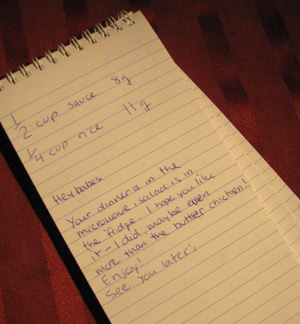 1/2 cup sauce 8g
1/4 cup rice 11g
Hey babes
Your dinner is in the
microwave; salad is in
the fridge. I hope you like
it - I did, maybe even
more than the butter chicken!
Enjoy!
See you later,